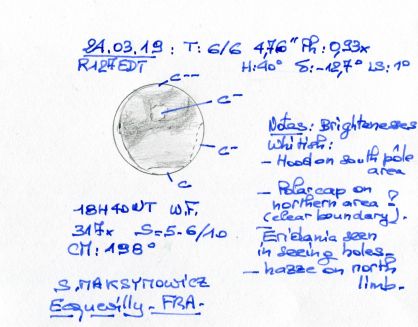 24.03.19 : T: 6/6 4,76" Ph: 0,93x
R127EDT H: 40° δ: -12,7° LS: 1°
C--
C-
C-
C
Notas: Brightenesses
Whitish:
- Hood on south pôle
area
- Polar cap on
northern area?
(clear boundary).
Eridania seen
in seeing holes.
- hazze on north
limb.
18H40UT W.F.
317x S=5-6/10
CM: 198°
S. MAKSYMOWICZ
Ecquevilly - FRA.